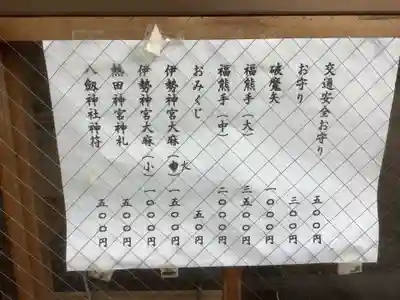 交通安全お守り 五〇〇円
お守り 三〇〇円
破魔矢 一〇〇〇円
福熊手(大) 三五〇〇円
福熊手(中) 二〇〇〇円
おみくじ 五〇円
伊勢神宮大麻(大) 一五〇〇円
伊勢神宮大麻(小) 一〇〇〇円
熱田神宮神札 五〇〇円
八劔神社神符 五〇〇円